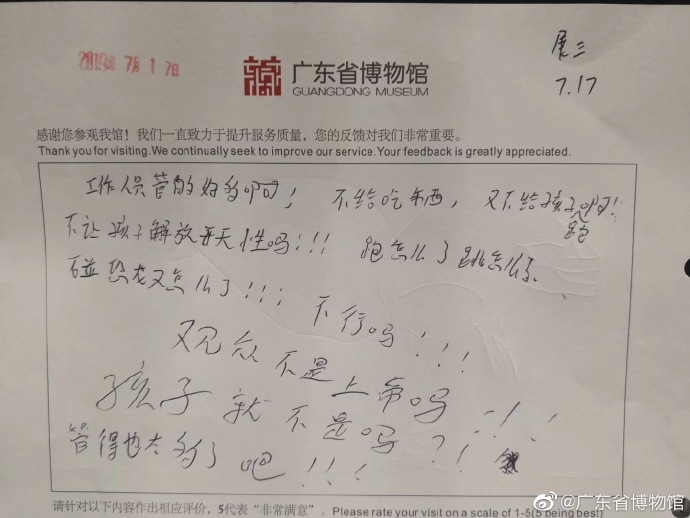 2019年 7月 17日
展三
7.17
广东省博物馆
GUANGDONG MUSEUM
感谢您参观我馆！我们一直致力于提升服务质量，您的反馈对我们非常重要。
Thank you for visiting.We continually seek to improve our service.Your feedback is greatly appreciated.
工作人员管的好多啊！ 不给吃东西，又不给孩子跑啊！
不让孩子解放天性吗！！！ 跑怎么了跳怎么了
碰恐龙又怎么了！！！
不行吗！！！
观众不是上帝吗
孩子就不是吗？！！！
管得也太多了吧！！！
请针对以下内容作出相应评价，5代表“非常满意”。Please rate your visit on a scale of 1-5(5 being best)
@广东省博物馆